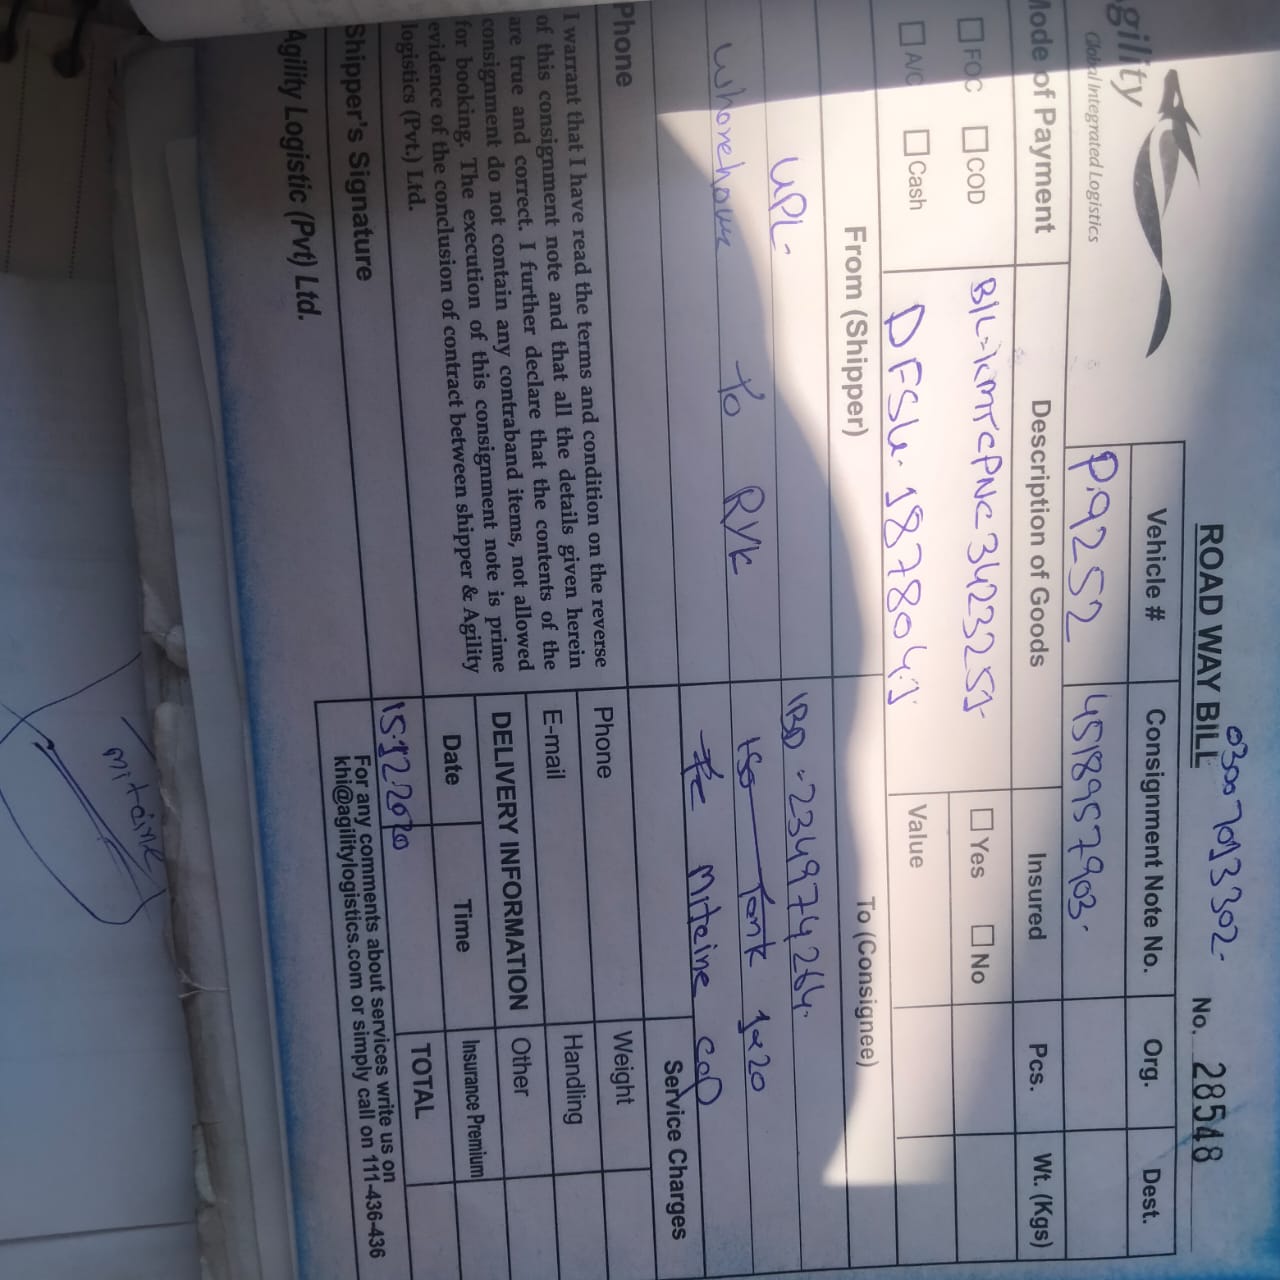 03007013302.
ROAD WAY BILL
No. 28548
gility
Global Integrated Logistics
Vehicle # Consignment Note No. Org. Dest.
P.9252 4518957903.
Mode of Payment Description of Goods Insured Pcs. Wt. (Kgs)
FOC COD B/L-KMTCPNC3423251 Yes No
A/C Cash DFSU. 1878041 Value
From (Shipper) To (Consignee)
UPL- IBD -234974264.
To RYK Iso Tank 1x20
Miteine cop
Service Charges
Phone
Phone Weight
E-mail Handling
DELIVERY INFORMATION Other
Date Time Insurance Premium
15.12.2020 TOTAL
I warrant that I have read the terms and condition on the reverse
of this consignment note and that all the details given herein
are true and correct. I further declare that the contents of the
consignment do not contain any contraband items, not allowed
for booking. The execution of this consignment note is prime
evidence of the conclusion of contract between shipper & Agility
logistics (Pvt.) Ltd.
Shipper's Signature
For any comments about services write us on
khi@agilitylogistics.com or simply call on 111-436-436
Agility Logistic (Pvt) Ltd.
miteine